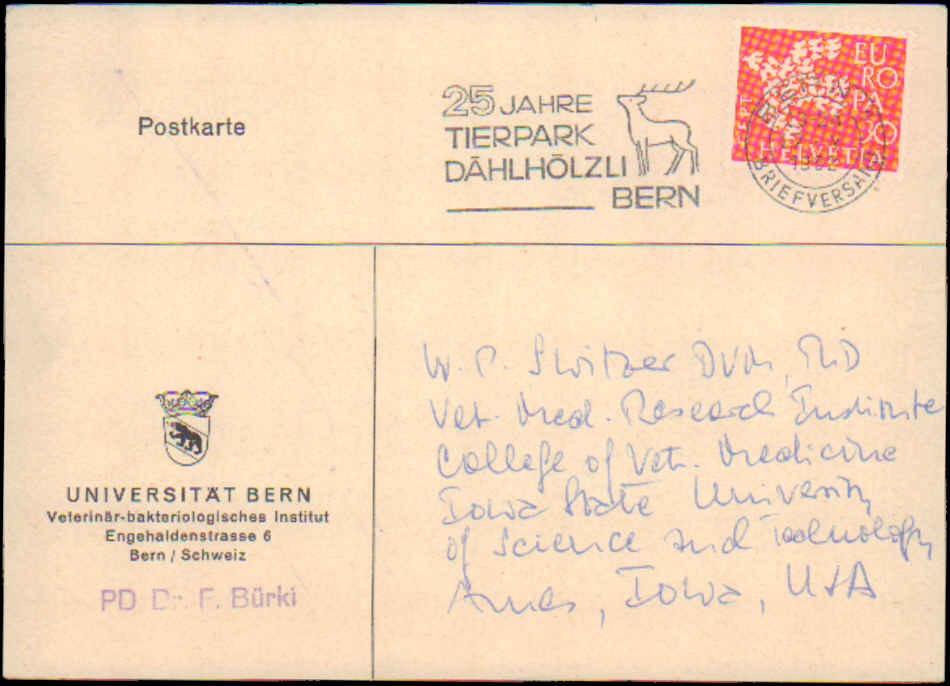 Postkarte
25 JAHRE
TIERPARK
DÄHLHÖLZLI
BERN
EUROPA
30
HELVETIA
BERN
1962
BRIEFVERSAND
UNIVERSITÄT BERN
Veterinär-bakteriologisches Institut
Engehaldenstrasse 6
Bern / Schweiz
PD Dr. F. Bürki
W. P. Switzer DVM, PhD
Vet. Med. Research Institute
College of Vet. Medicine
Iowa State University
of Science and Technology
Ames, Iowa, USA